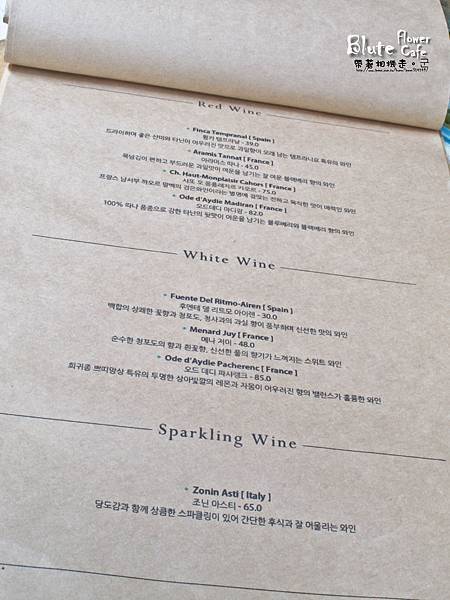 Blute Flower Cafe
帶著相機走。
Red Wine
Finca Tampranal [ Spain ]
핑카 템프라날 - 39.0
드라이하며 좋은 산미와 타닌이 어우러진 맛으로 과일향이 오래 남는 템프라니요 특유의 와인
Aramis Tannat [ France ]
아라미스 따나 - 45.0
목넘김이 편하고 부드러운 과일맛이 여운을 남기는 잘 여운 블랙베리 향의 와인
Ch. Haut-Monplaisir Cahors [ France ]
샤또 오 몽플레지르 카오르 - 75.0
프랑스 남서부 까오르 말벡의 검은와인이라는 별명에 걸맞는 진하고 묵직한 맛이 매력인 와인
Ode d'Aydie Madiran [ France ]
오드데디 마디랑 - 82.0
100% 따나 품종으로 강한 타닌의 뒷맛이 여운을 남기는 블루베리와 블랙베리 향의 와인
White Wine
Fuente Del Ritmo-Airen [ Spain ]
후엔테 델 리트모 아이렌 - 30.0
백합의 상쾌한 꽃향과 청포도, 청사과의 과실 향이 풍부하며 신선한 맛의 와인
Menard Juy [ France ]
메나 저미 - 48.0
순수한 청포도의 향과 흰꽃향, 신선한 풀의 향기가 느껴지는 스위트 와인
Ode d'Aydie Pacherenc [ France ]
오드 데디 파샤랭크 - 85.0
희귀종 쁘띠망상 특유의 투명한 상아빛깔의 레몬과 자몽이 어우러진 향의 밸런스가 훌륭한 와인
Sparkling Wine
Zonin Asti [ Italy ]
조닌 아스티 - 65.0
당도감과 함께 상큼한 스파클링이 있어 간단한 후식과 잘 어울리는 와인